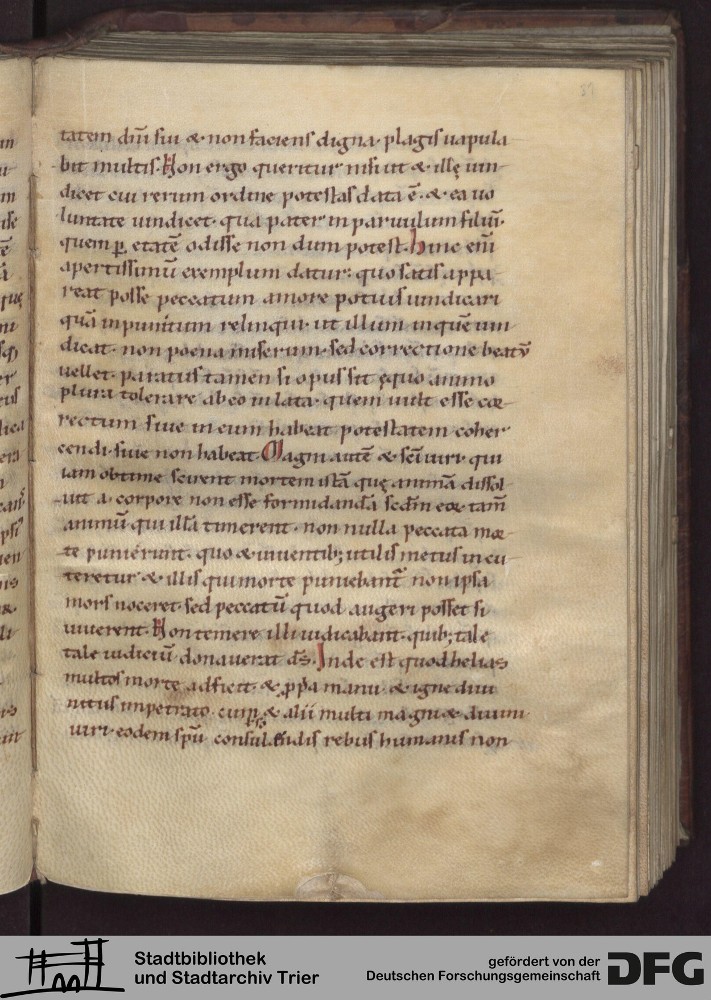 37
tatem dñi sui & non faciens digna plagis uapula
bit multis. Non ergo queritur nisi ut & ille uin
dicet cui rerum ordine potestas data ē. & ea uo
luntate uindicet. qua pater in paruulum filiū.
quem ꝑ etatē odisse non dum potest. hinc eni
apertissimū exemplum datur. quo satis appa
reat posse peccatum amore potius uindicari
quā inpunitum relinqui. ut illum in quē uin
dicat. non poena miserum. sed correctione beatū
uellet. paratus tamen si opus sit ęquo animo
plura tolerare ab eo inlata. quem uult esse cor
rectum siue in eum habeat potestatem coher
cendi. siue non habeat. Magni autē & sc̄i uiri. qui
iam obtime scirent mortem istā quę animā dissol
uit a corpore non esse formidandā secdm eor tam̄
animū qui illā timerent. non nulla peccata mor
te punierunt. quo & uiuentib; utilis metus incu
teretur & illis qui morte puniebant̄ non ipsa
mors noceret. sed peccatū quod augeri posset si
uiuerent. Non temere illi iudicabant. quib; tale
tale iudiciū donauerat d̄s. Inde est quod helias
multos morte adfecit. & ꝓpa manu. & igne diui
nitus impetrato. cum & alii multi magni & diuini
uiri. eodem spū consulendis rebus humanis non
Stadtbibliothek
und Stadtarchiv Trier
gefördert von der
Deutschen Forschungsgemeinschaft
DFG